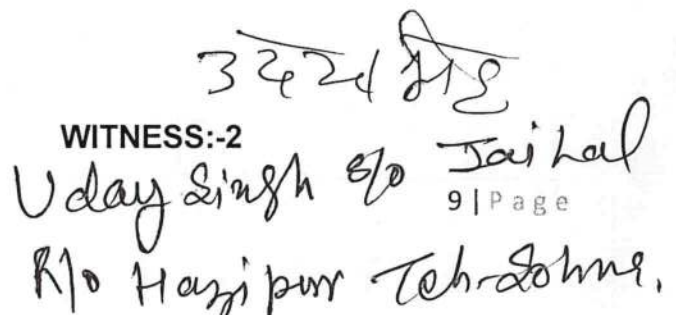 उदय सिंह
WITNESS:-2
Uday Singh S/o Jai Lal
9 | Page
R/o Hazipur Teh-Sohna.